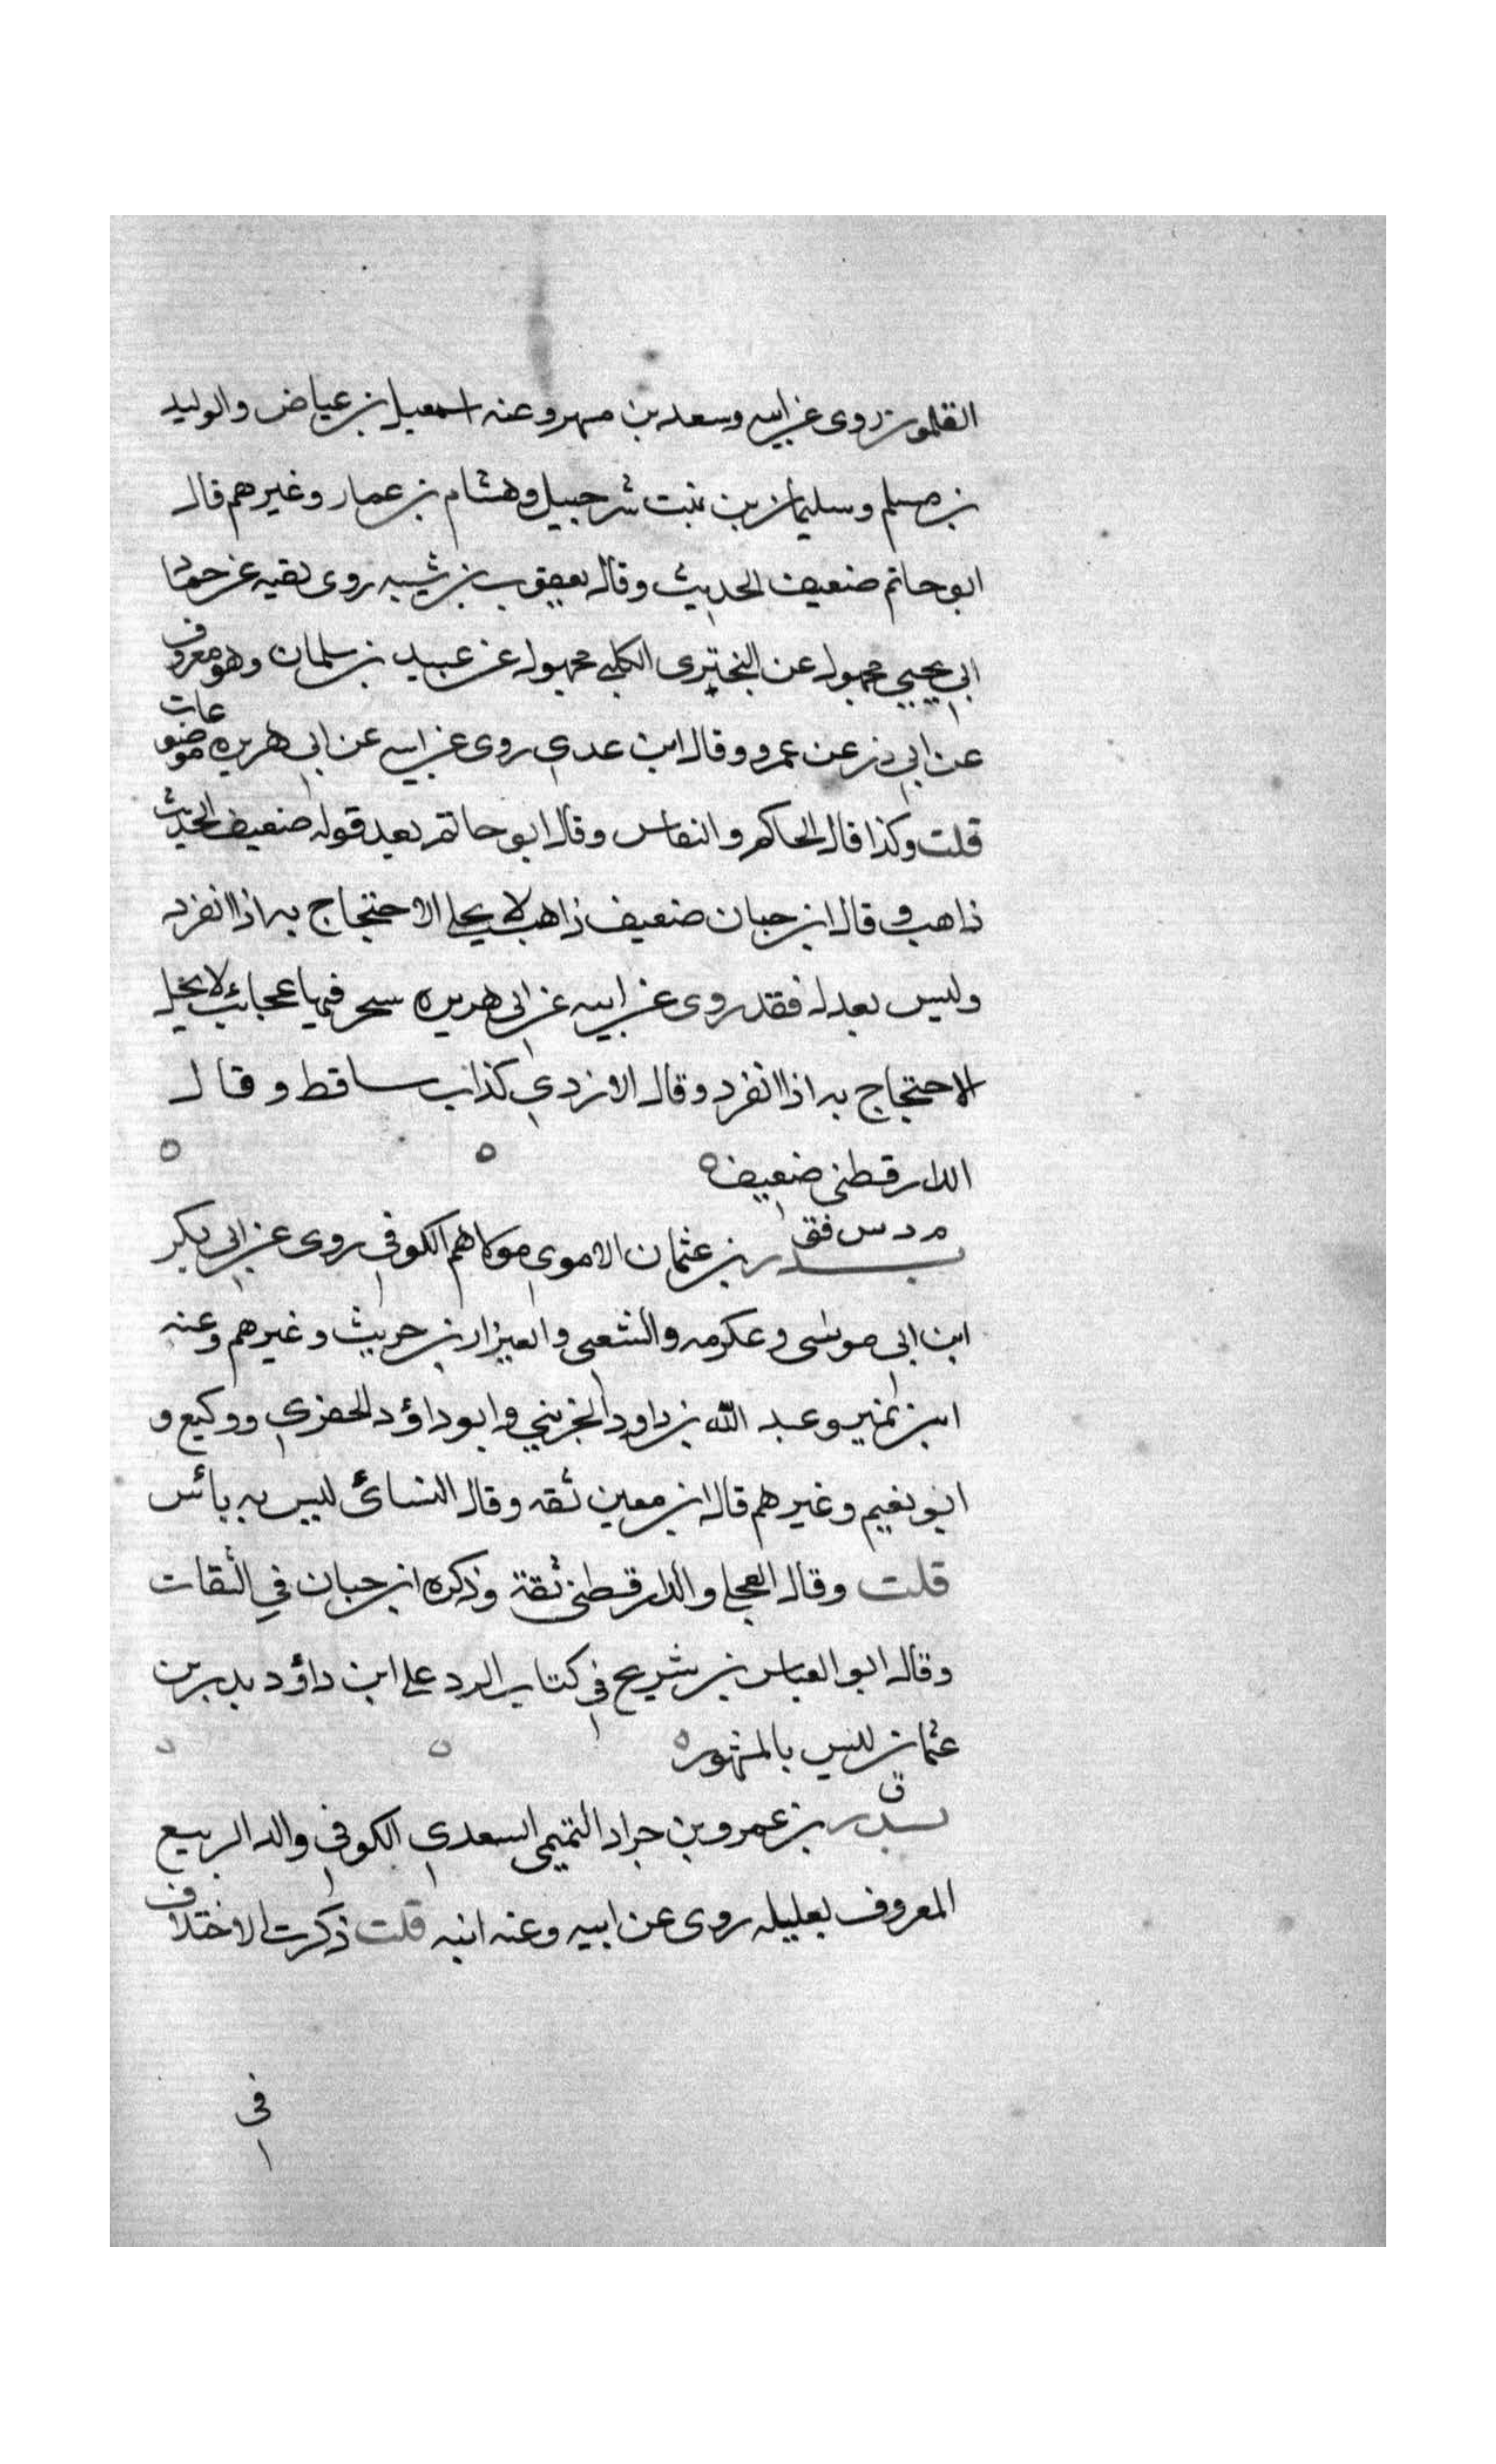 القلمون روى عن ابيه وسعد بن مسهر وعنه اسمعيل بن عياض والوليد
بن مسلم وسليمان بن بنت شرحبيل وهشام بن عمار وغيرهم قال
ابو حاتم ضعيف الحديث وقال يعقوب بن شيبه روى بقيه عن
ابي يحيي مجهول عن البختري الكلبي مجهول عن عبيد بن سلمان وهو معروف
عن ابي ذر عن عمرو وقال ابن عدي روى عن ابيه عن ابي هريره موضوعات
قلت وكذا قال الحاكم والنقاس وقال ابو حاتم بعد قوله ضعيف الحديث
ذاهب وقال ابن حبان ضعيف ذاهب لا يحل الاحتجاج به اذا انفرد
وليس بعدل فقد روى عن ابيه عن ابي هريره فيها عجائب لا يحل
الاحتجاج به اذا انفرد وقال الازدي كذاب ساقط وقال
الدارقطني ضعيف ه ه ه
م د س فق
بدر بن عثمان الاموي مولاهم الكوفي روى عن ابي بكر
ابن ابى موسى وعكرمه والشعبي والعيزار بن حريث وغيرهم وعنه
ابن نمير وعبد الله بن داود الخريبي وابو داؤد الحفري ووكيع و
ابو نعيم وغيرهم قال ابن معين ثقه وقال النسائ ليس به بائس
قلت وقال العجلي والدارقطني ثقة وذكره ابن حبان في الثقات
وقال ابو العباس بن شريح في كتاب الرد على ابن داؤد بدر بن
عثمان ليس بالمشهور ه ه ه
ق
بدر بن عمرو بن جراد التميمي السعدي الكوفي والد الربيع
المعروف بعليله روى عن ابيه وعنه ابنه قلت ذكرت الاختلاف
في